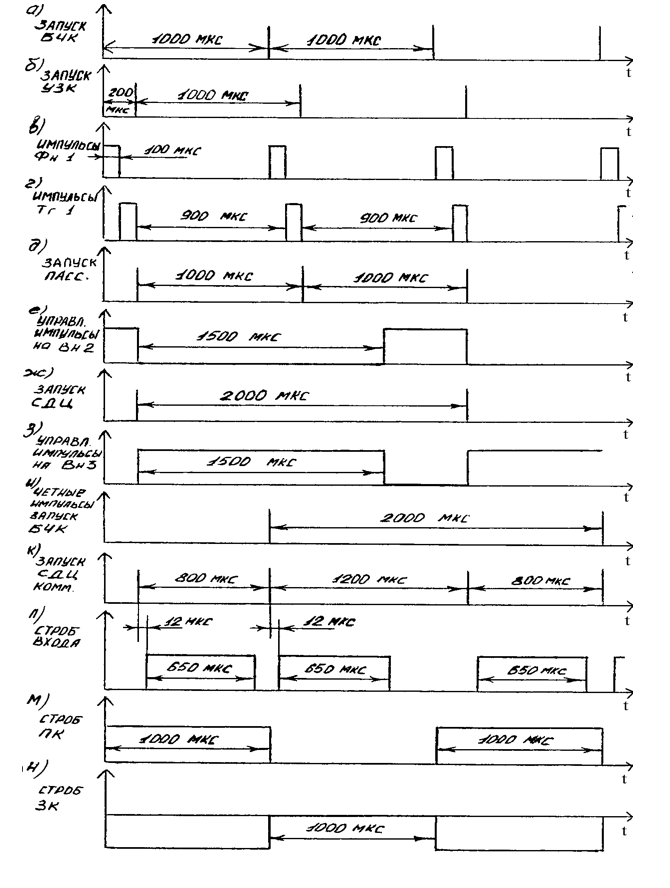 а)
ЗАПУСК
БЧК
1000 МКС
1000 МКС
t
б)
ЗАПУСК
УЗК
200
МКС
1000 МКС
t
в)
ИМПУЛЬСЫ
Фн 1
100 МКС
t
г)
ИМПУЛЬСЫ
Тг 1
900 МКС
900 МКС
t
д)
ЗАПУСК
ПАСС.
1000 МКС
1000 МКС
t
е)
УПРАВЛ.
ИМПУЛЬСЫ
НА Вн2
1500 МКС
t
ж)
ЗАПУСК
СДЦ
2000 МКС
t
з)
УПРАВЛ.
ИМПУЛЬСЫ
НА Вн3
1500 МКС
t
и)
ЧЕТНЫЕ
ИМПУЛЬСЫ
ЗАПУСК
БЧК
2000 МКС
t
к)
ЗАПУСК
СДЦ
КОММ.
800 МКС
1200 МКС
800 МКС
t
л)
СТРОБ
ВХОДА
12 МКС
12 МКС
650 МКС
650 МКС
650 МКС
t
м)
СТРОБ
ПК
1000 МКС
1000 МКС
t
н)
СТРОБ
ЗК
1000 МКС
t